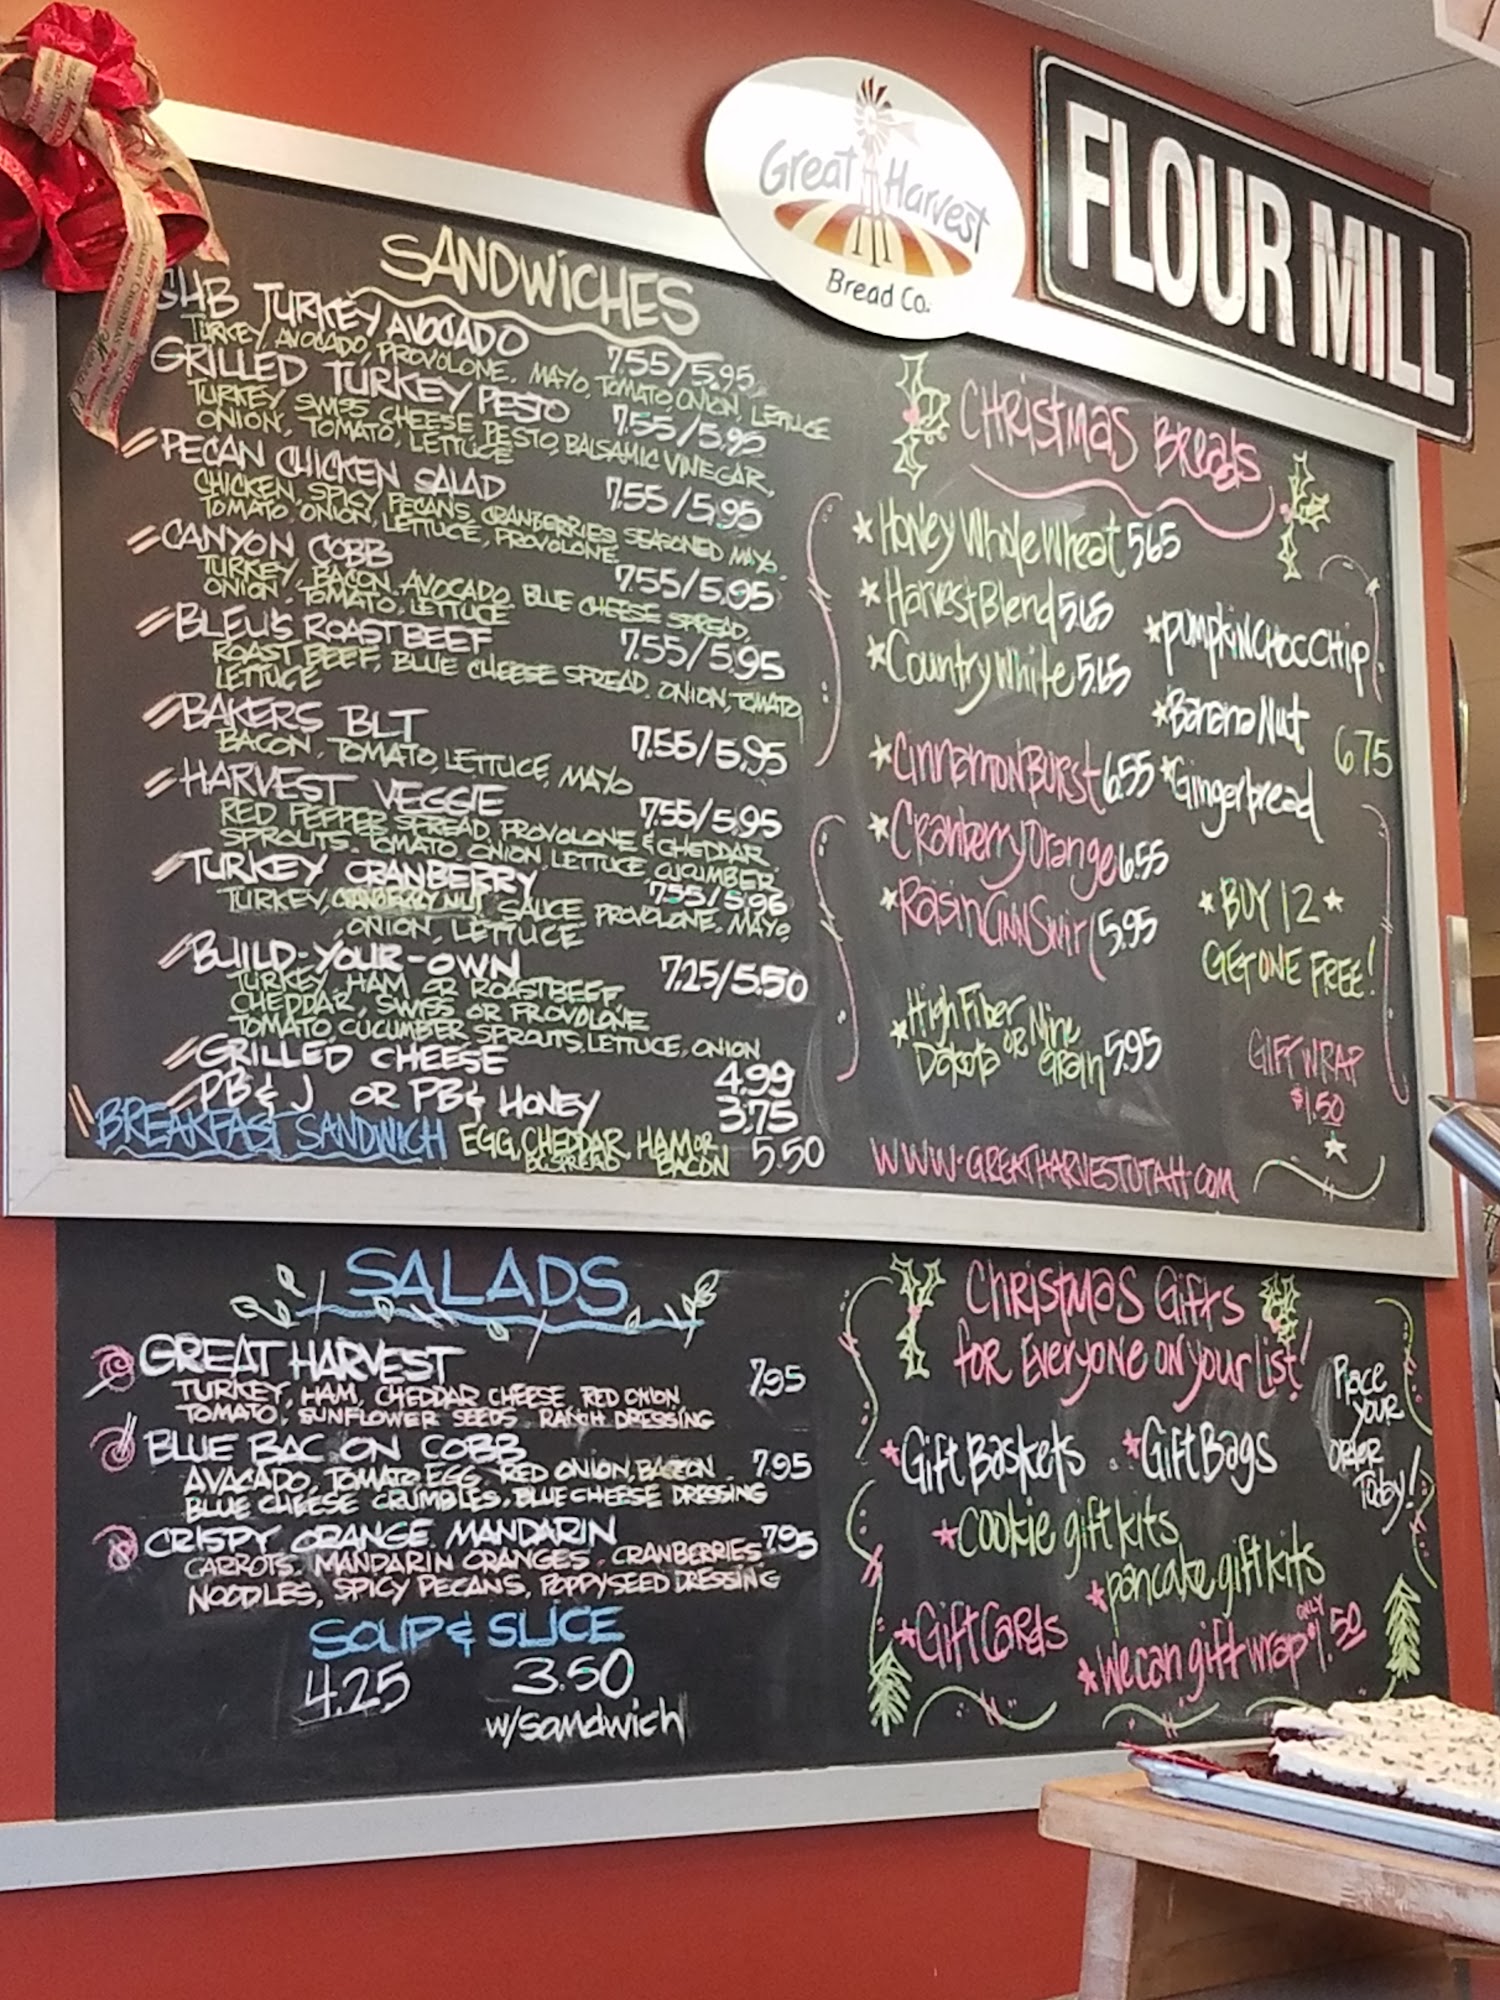 Great Harvest
Bread Co.
FLOUR MILL
SANDWICHES
GHB TURKEY AVOCADO 7.55/5.95
TURKEY, AVOCADO, PROVOLONE, MAYO, TOMATO ONION, LETTUCE
GRILLED TURKEY PESTO 7.55/5.95
TURKEY SWISS CHEESE PESTO, BALSAMIC VINEGAR,
ONION, TOMATO, LETTUCE
PECAN CHICKEN SALAD 7.55/5.95
CHICKEN, SPICY PECANS, CRANBERRIES SEASONED MAYO,
TOMATO, ONION, LETTUCE, PROVOLONE
CANYON COBB 7.55/5.95
TURKEY, BACON, AVOCADO, BLUE CHEESE SPREAD,
ONION, TOMATO, LETTUCE
BLEU'S ROAST BEEF 7.55/5.95
ROAST BEEF, BLUE CHEESE SPREAD, ONION, TOMATO,
LETTUCE
BAKERS BLT 7.55/5.95
BACON, TOMATO, LETTUCE, MAYO
HARVEST VEGGIE 7.55/5.95
RED PEPPER SPREAD, PROVOLONE & CHEDDAR
SPROUTS, TOMATO, ONION, LETTUCE, CUCUMBER
TURKEY CRANBERRY 7.55/5.96
TURKEY, CRANBERRY NUT SAUCE, PROVOLONE, MAYO,
ONION, LETTUCE
BUILD-YOUR-OWN 7.25/5.50
TURKEY, HAM OR ROASTBEEF,
CHEDDAR, SWISS OR PROVOLONE
TOMATO, CUCUMBER, SPROUTS, LETTUCE, ONION
GRILLED CHEESE 4.99
PB & J OR PB & HONEY 3.75
BREAKFAST SANDWICH EGG, CHEDDAR, HAM OR BACON 5.50
BC SPREAD
CHRISTMAS BREADS
*Honey Whole Wheat 5.65
*Harvest Blend 5.65
*Country White 5.65
*Cinnamon Burst 6.55
*Cranberry Orange 6.55
*Raisin Cinn Swirl 5.95
*High Fiber or Nine
Dakota Grain 5.95
*PUMPKIN CHOC CHIP
*Banana Nut
6.75
*Gingerbread
*BUY 12*
GET ONE FREE!
GIFT WRAP
$1.50
WWW.GREATHARVESTUTAH.COM
SALADS
GREAT HARVEST 7.95
TURKEY, HAM, CHEDDAR CHEESE, RED ONION,
TOMATO, SUNFLOWER SEEDS, RANCH DRESSING
BLUE BACON COBB 7.95
AVACADO, TOMATO, EGG, RED ONION, BACON
BLUE CHEESE CRUMBLES, BLUE CHEESE DRESSING
CRISPY ORANGE MANDARIN 7.95
CARROTS, MANDARIN ORANGES, CRANBERRIES
NOODLES, SPICY PECANS, POPPYSEED DRESSING
SOUP & SLICE
4.25 3.50
w/sandwich
Christmas Gifts
for Everyone on your List!
Place
your
order
Today!
*Gift Baskets *Gift Bags
*Cookie gift kits
*pancake gift kits
*Gift Cards
*We can gift wrap only $1.50